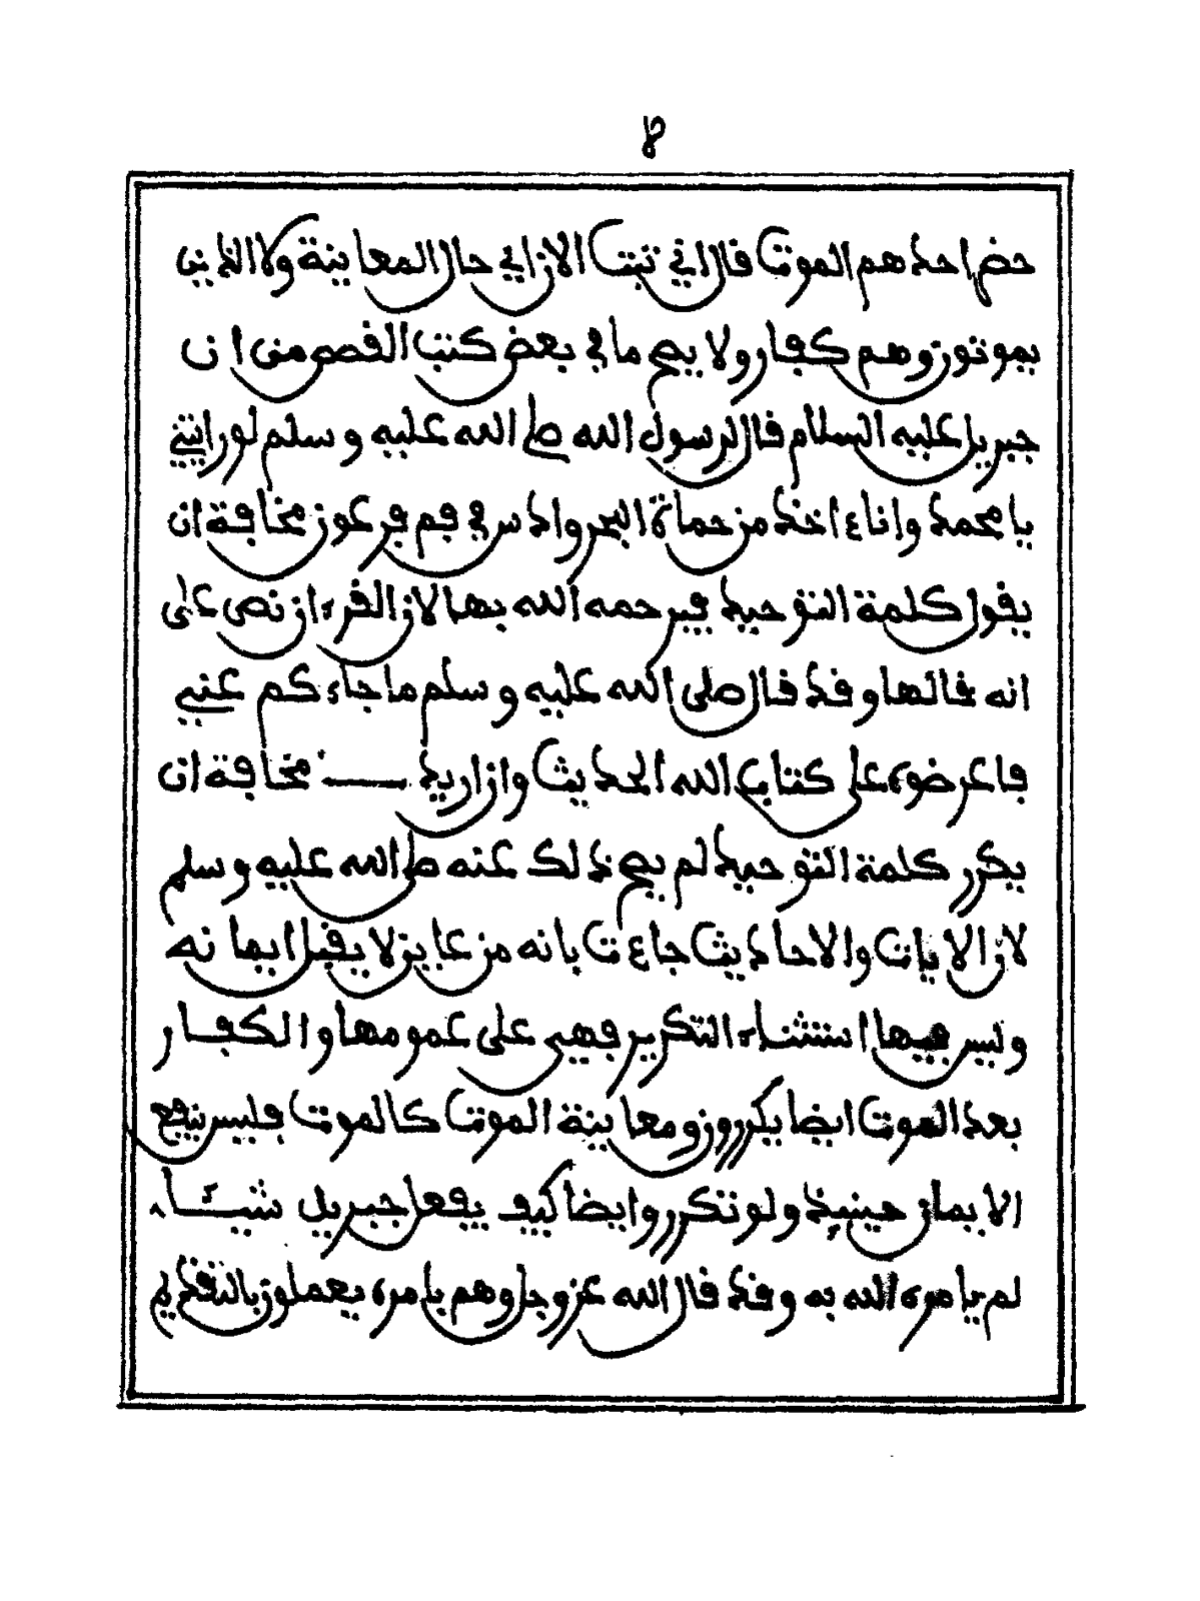 حضر احدهم الموت قال اني تبت الان اي حال المعاينة ولا الذين
يموتون وهم كفار ولا يصح ما في بعض كتب القصص من ان
جبريل عليه السلام قال لرسول الله صلى الله عليه وسلم لو رايتني
يا محمد وانا ءاخذ من حماة البحر وادس في فم فرعون مخافة ان
يقول كلمة التوحيد فيرحمه الله بها لان القرءان نص على
انه قالها وقد قال صلى الله عليه وسلم ما جاءكم عني
فاعرضوه على كتاب الله الحديث وان اريد مخافة ان
يكرر كلمة التوحيد لم يصح ذلك عنه صلى الله عليه وسلم
لان الايات والاحاديث جاءت بانه من عاين لا يقبل ايمانه
وليس فيها استثناء التكرير فهي على عمومها والكفار
بعد الموت ايضا يكررون ومعاينة الموت كالموت فليس ينفع
الايمان حينيذ ولو تكرر وايضا كيف يفعل جبريل شيـا
لم يامره الله به وقد قال الله عز وجل وهم بامره يعملون